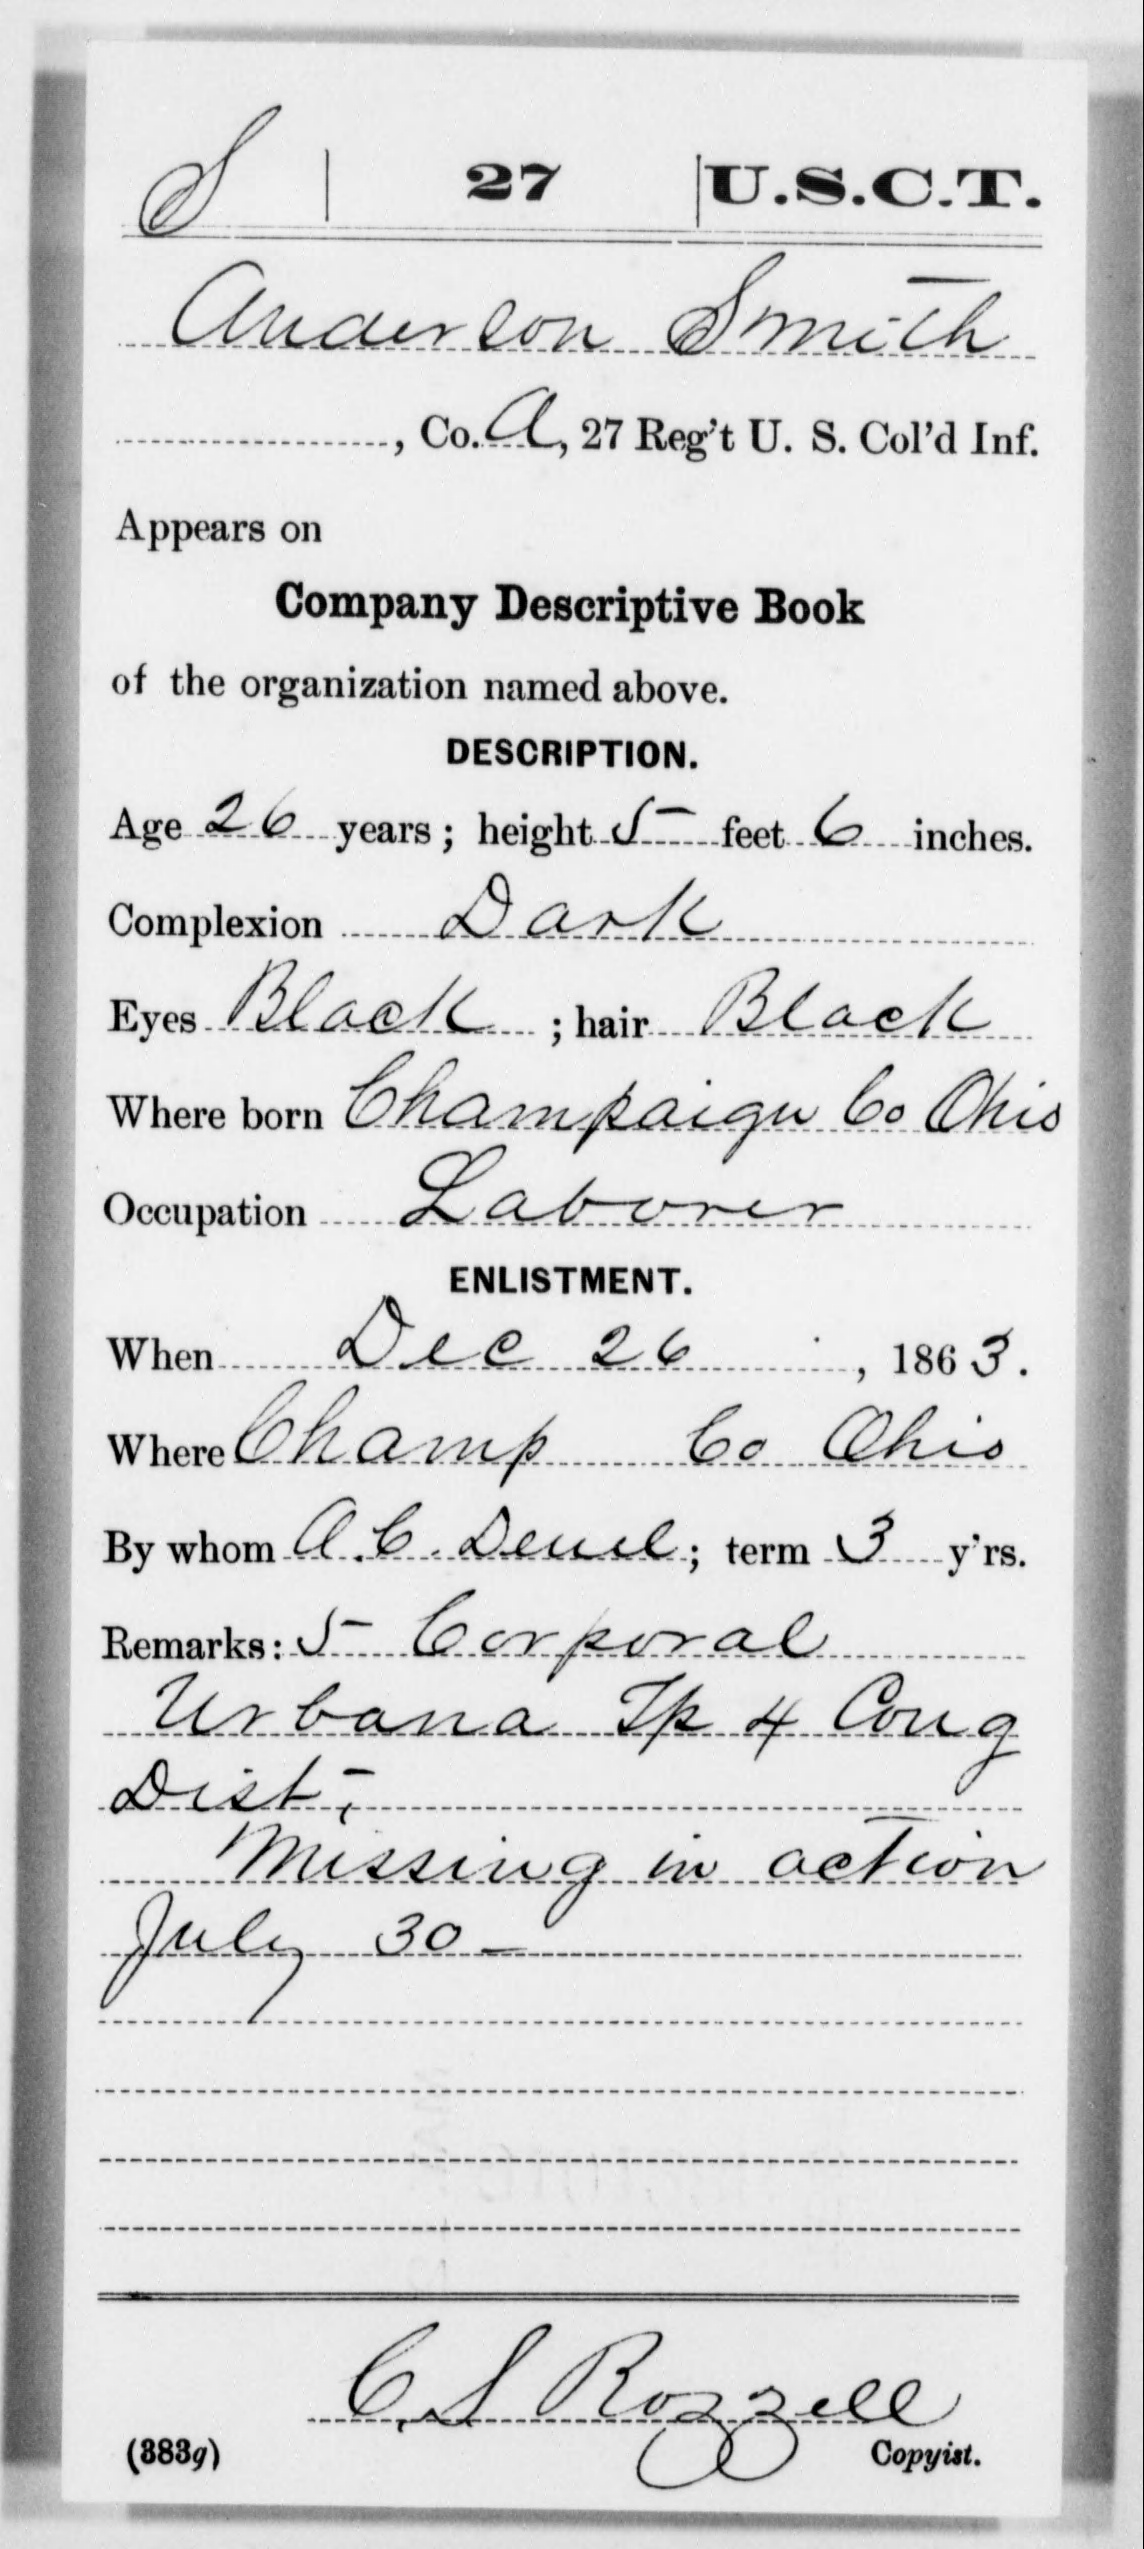 S | 27 | U.S.C.T.
Anderson Smith
, Co. A, 27 Reg't U. S. Col'd Inf.
Appears on
Company Descriptive Book
of the organization named above.
DESCRIPTION.
Age 26 years; height 5 feet 6 inches.
Complexion Dark
Eyes Black; hair Black
Where born Champaign Co Ohio
Occupation Laborer
ENLISTMENT.
When Dec 26, 1863.
Where Champ Co Ohio
By whom A. C. Deuel; term 3 y'rs.
Remarks: 5 Corporal
Urbana Tp 4 Cong
Dist,
Missing in action
July 30
C. S Rozzell
(383g) Copyist.